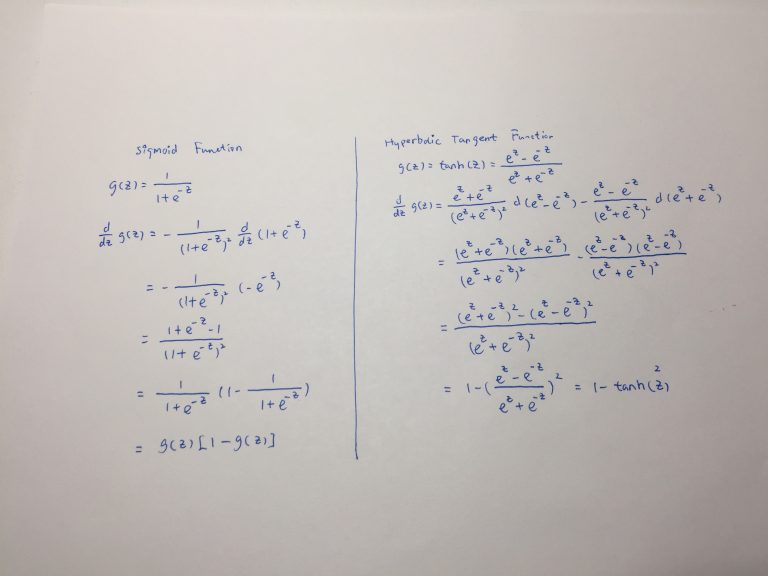 Sigmoid Function
g(z) = 1/(1+e^-z)
d/dz g(z) = - 1/(1+e^-z)² d/dz (1+e^-z)
= - 1/(1+e^-z)² (-e^-z)
= (1+e^-z-1)/(1+e^-z)²
= 1/(1+e^-z) (1- 1/(1+e^-z))
= g(z)[1-g(z)]
Hyperbolic Tangent Function
g(z) = tanh(z) = (e^z - e^-z)/(e^z + e^-z)
d/dz g(z) = (e^z + e^-z)/(e^z+e^-z)² d(e^z - e^-z) - (e^z - e^-z)/(e^z+e^-z)² d(e^z+e^-z)
= (e^z+e^-z)(e^z+e^-z)/(e^z+e^-z)² - (e^z-e^-z)(e^z-e^-z)/(e^z+e^-z)²
= ((e^z+e^-z)² - (e^z-e^-z)²)/(e^z+e^-z)²
= 1-((e^z-e^-z)/(e^z+e^-z))² = 1- tanh(z)²